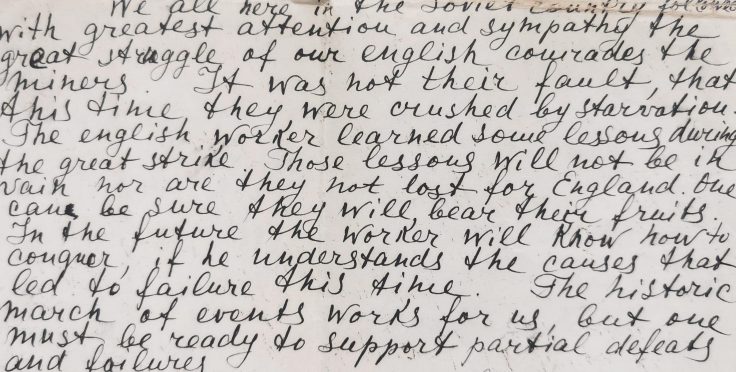 We all here in the Soviet country followed
with greatest attention and sympathy the
great struggle of our english comrades the
miners. It was not their fault, that
this time they were crushed by starvation.
The english worker learned some lessons during
the great strike. Those lessons will not be in
vain nor are they not lost for England. One
cane be sure they will bear their fruits.
In the future the worker will know how to
conquer, if he understands the causes that
led to failure this time. The historic
march of events works for us, but one
must be ready to support partial defeats
and failures